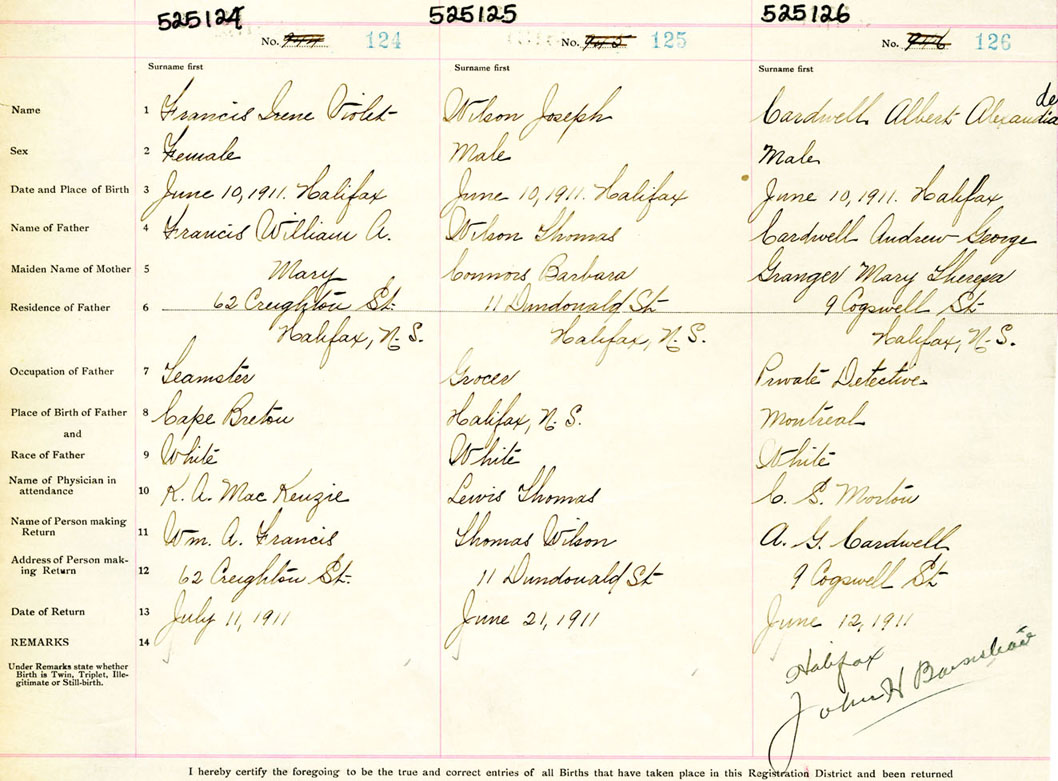 525124 525125 525126
No. 944 124 No. 945 125 No. 946 126
Surname first Surname first Surname first
Name 1 Francis Irene Violet Wilson Joseph Cardwell Albert Alexandia de
Sex 2 Female Male Male
Date and Place of Birth 3 June 10, 1911. Halifax June 10, 1911. Halifax June 10, 1911. Halifax
Name of Father 4 Francis William A. Wilson Thomas Cardwell Andrew George
Maiden Name of Mother 5 Mary Connors Barbara Granger Mary Theresa
Residence of Father 6 62 Creighton St. 11 Dundonald St 9 Cogswell St
Halifax, N.S. Halifax, N.S. Halifax, N.S.
Occupation of Father 7 Teamster Grocer Private Detective
Place of Birth of Father 8 Cape Breton Halifax, N.S. Montreal
and
Race of Father 9 White White White
Name of Physician in
attendance 10 K. A. MacKenzie Lewis Thomas C. S. Morton
Name of Person making
Return 11 Wm. A. Francis Thomas Wilson A. G. Cardwell
Address of Person mak-
ing Return 12 62 Creighton St. 11 Dundonald St 9 Cogswell St
Date of Return 13 July 11, 1911 June 21, 1911 June 12, 1911
REMARKS 14
Under Remarks state whether
Birth is Twin, Triplet, Ille-
gitimate or Still-birth.
Halifax
John H Barnstead
I hereby certify the foregoing to be the true and correct entries of all Births that have taken place in this Registration District and been returned